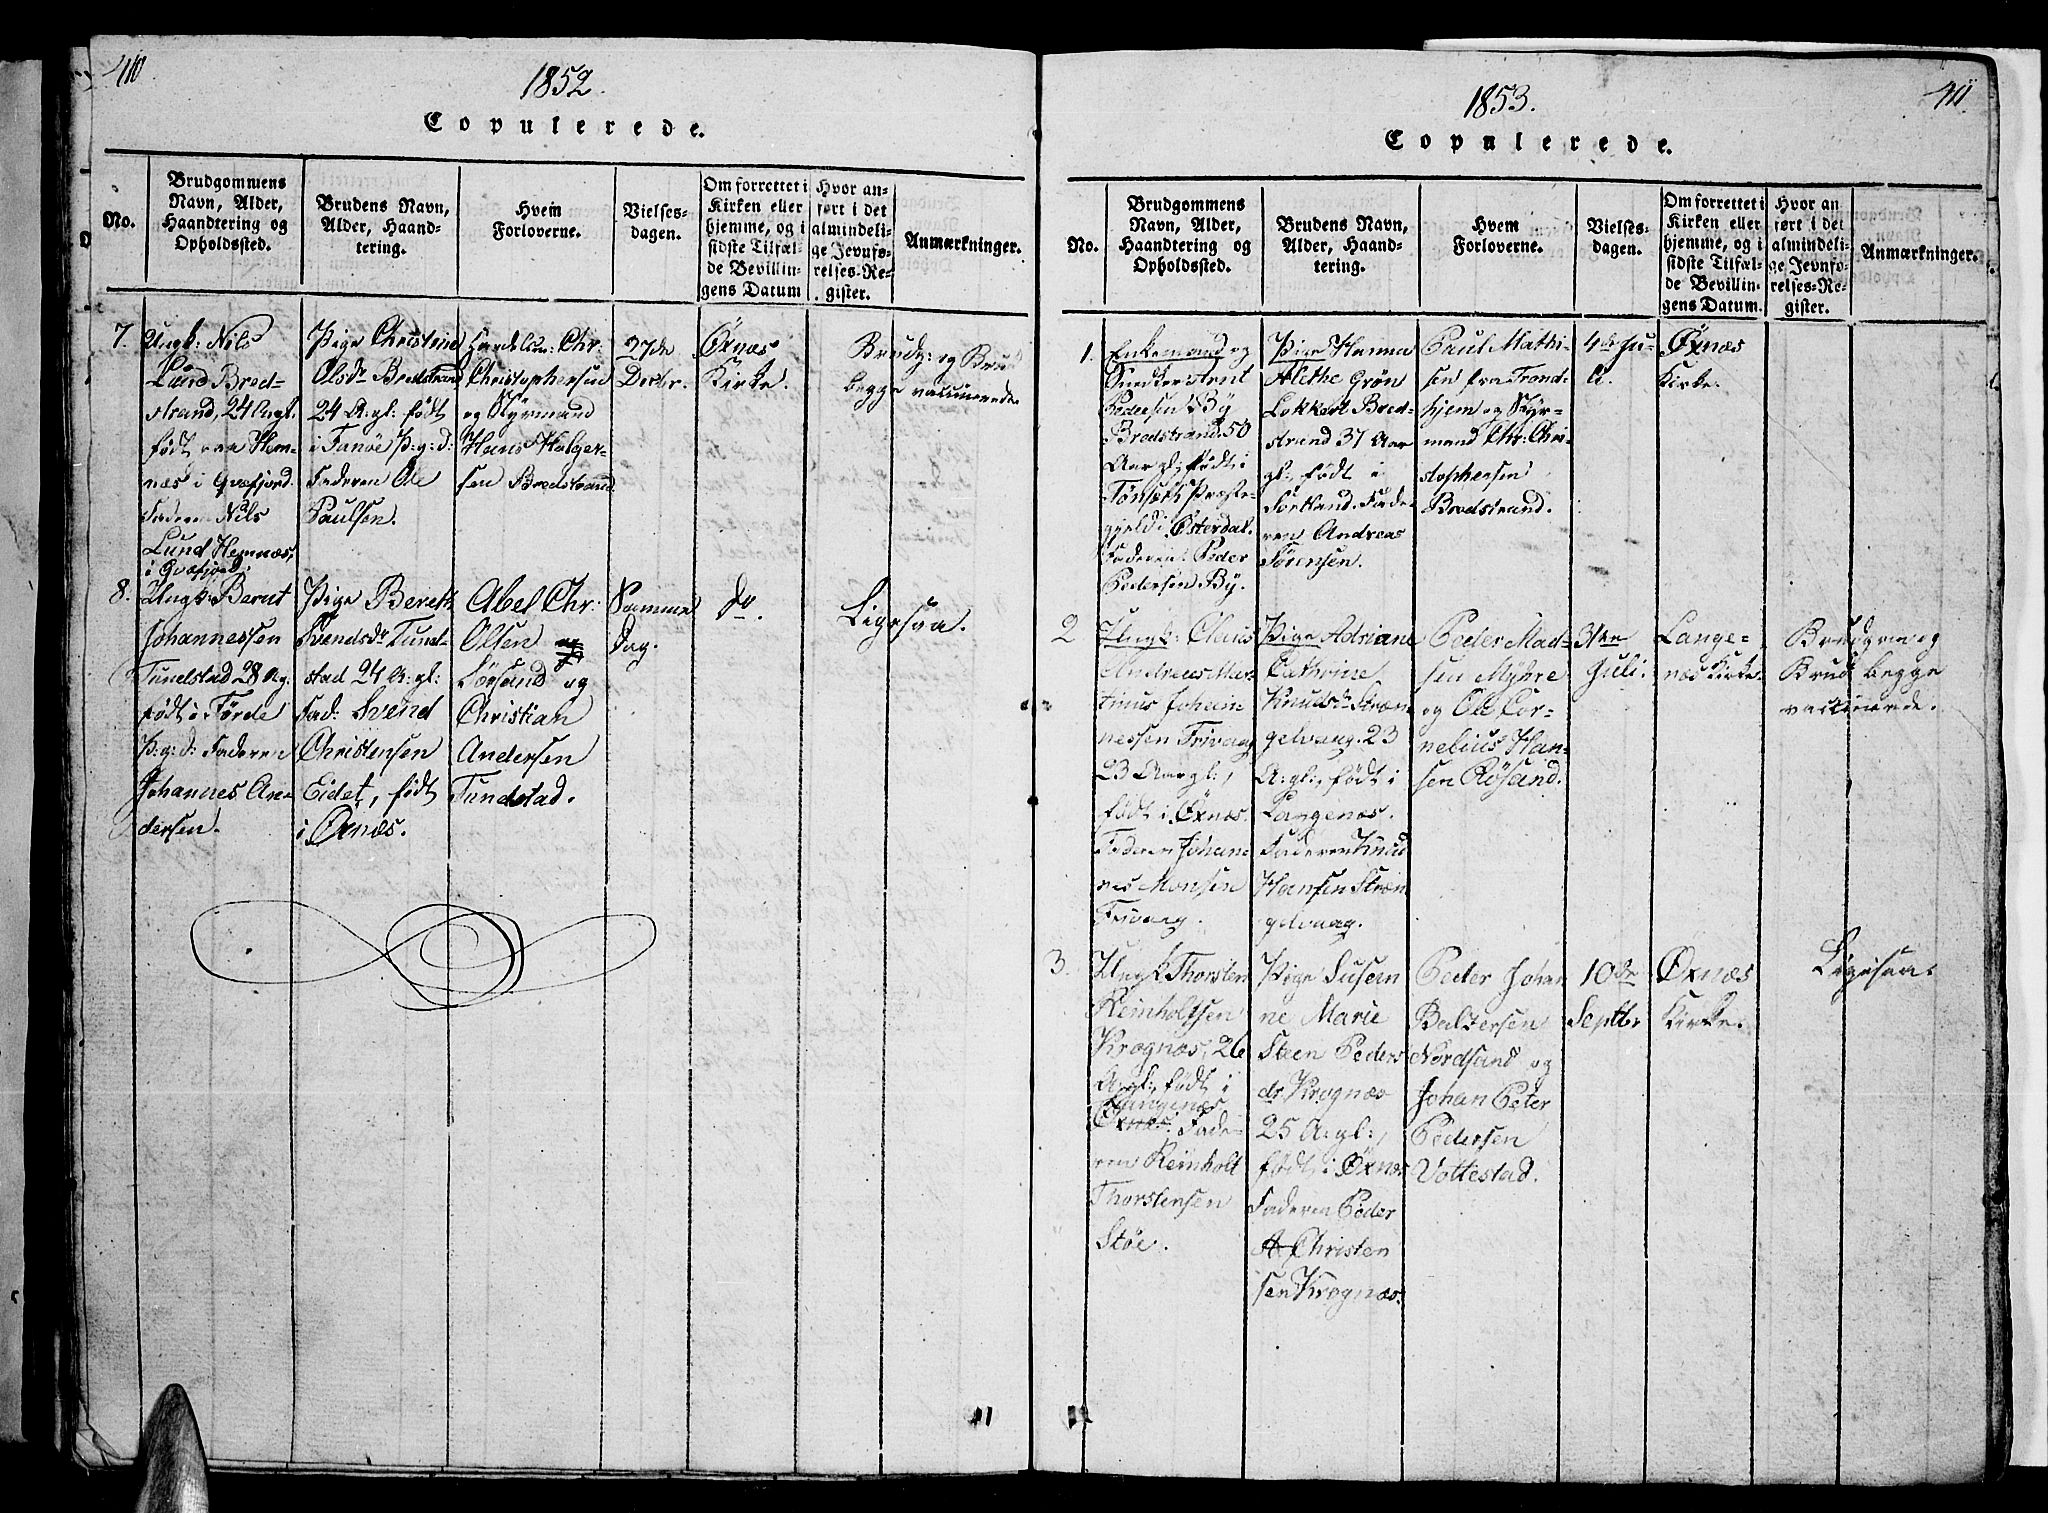 410
1852.
Copulerede.
No.
Brudgommens Navn, Alder, Haandtering og Opholdssted.
Brudens Navn, Alder, Haandtering.
Hvem Forloverne.
Vielsesdagen.
Om forrettet i Kirken eller hjemme, og i sidste Tilfælde Bevillingens Datum
Hvor anført i det almindelige Jevnførelses-Register.
Anmærkninger.
7.
Ungk: Nils
Lund Bred-
strand, 24 A. gl.
født paa Hem-
næs i Qvæfjord.
Faderen Nils
Lund Hemnæs,
i Qvæfjord.
Pige Christine
Olsdr Bredstrand
24 A: gl: født
i Tanøe P: g: d:
Faderen Ole
Paulsen.
Handelsm: Chr:
Christophersen
og Styrmand
Hans Holger-
sen Bredstrand
27de
Decbr.
Öxnæs
Kirke.
Brudg: og Brud
begge vaccinerede
8.
Ungk: Bernt
Johannessen
Tundstad 28 A g:
født i Førde
P: g: d: Faderen
Johannes An-
dersen.
Pige Bereth
Svendsdr Tund-
stad 24 A: gl:
Fad: Svend
Christensen
Eidet, født
i Öxnæs.
Abel Chr:
Olsen
Sørsand og
Christian
Andersen
Tundstad.
Samme
Dag.
do.
Ligesaa.
411
1853.
Copulerede.
No.
Brudgommens Navn, Alder, Haandtering og Opholdssted.
Brudens Navn, Alder, Haandtering.
Hvem Forloverne.
Vielsesdagen.
Om forrettet i Kirken eller hjemme, og i sidste Tilfælde Bevillingens Datum.
Hvor anført i det almindelige Jevnførelses-Register.
Anmærkninger.
1.
Enkemand og
Snedker Arnt
Pedersen By
Bredstrand 50
Aar gl: født i
Tønseth Præste-
gjeld i Österdal.
Faderen: Peder
Pedersen By.
Pige Hanna
Alethe Grøn
Lokkert Bred-
strand 37 Aar
gl:, født i
Sortland. Fade-
ren Andreas
Sørensen.
Paul Mathi-
sen fra Trond-
hjem og Styr-
mand Chr: Chri-
stophersen
Bredstrand.
4de Ju-
li.
Öxnæs
Kirke.
2
Ungk: Claus
Andreas Mar-
tinus Johan-
nessen Frivaag
23 Aar gl:,
født i Öxnæs.
Faderen Johan-
nes Monsen
Frivaag.
Pige Adriane
Cathrine
Knudsdr Stræn-
gelvaag. 23
A: gl:, født i
Langenæs.
Faderen Knud
Hansen Stræn
gelvaag.
Peder Mad-
sen Myhre
og Ole Cor-
nelius Han-
sen Rösand.
31te
Juli.
Lange-
næs Kirke.
Brudgom og
Brud begge
vaccinerede.
3.
Ungk Thorsten
Reinholtsen
Krognæs, 26
A. gl:, født i
Langenæs
Öxnæs. Fade-
ren Reinholt
Thorstensen
Støe.
Pige Susen
ne Marie
Steen Peders
dr. Krognæs
25 A: gl:,
født i Öxnæs
Faderen Peder
A Christen
sen Krognæs.
Peder Johan
Baltzersen
Nordsand og
Johan Peter
Pedersen
Vottestad.
10de
Septbr
Öxnæs
Kirke.
Ligesaa.